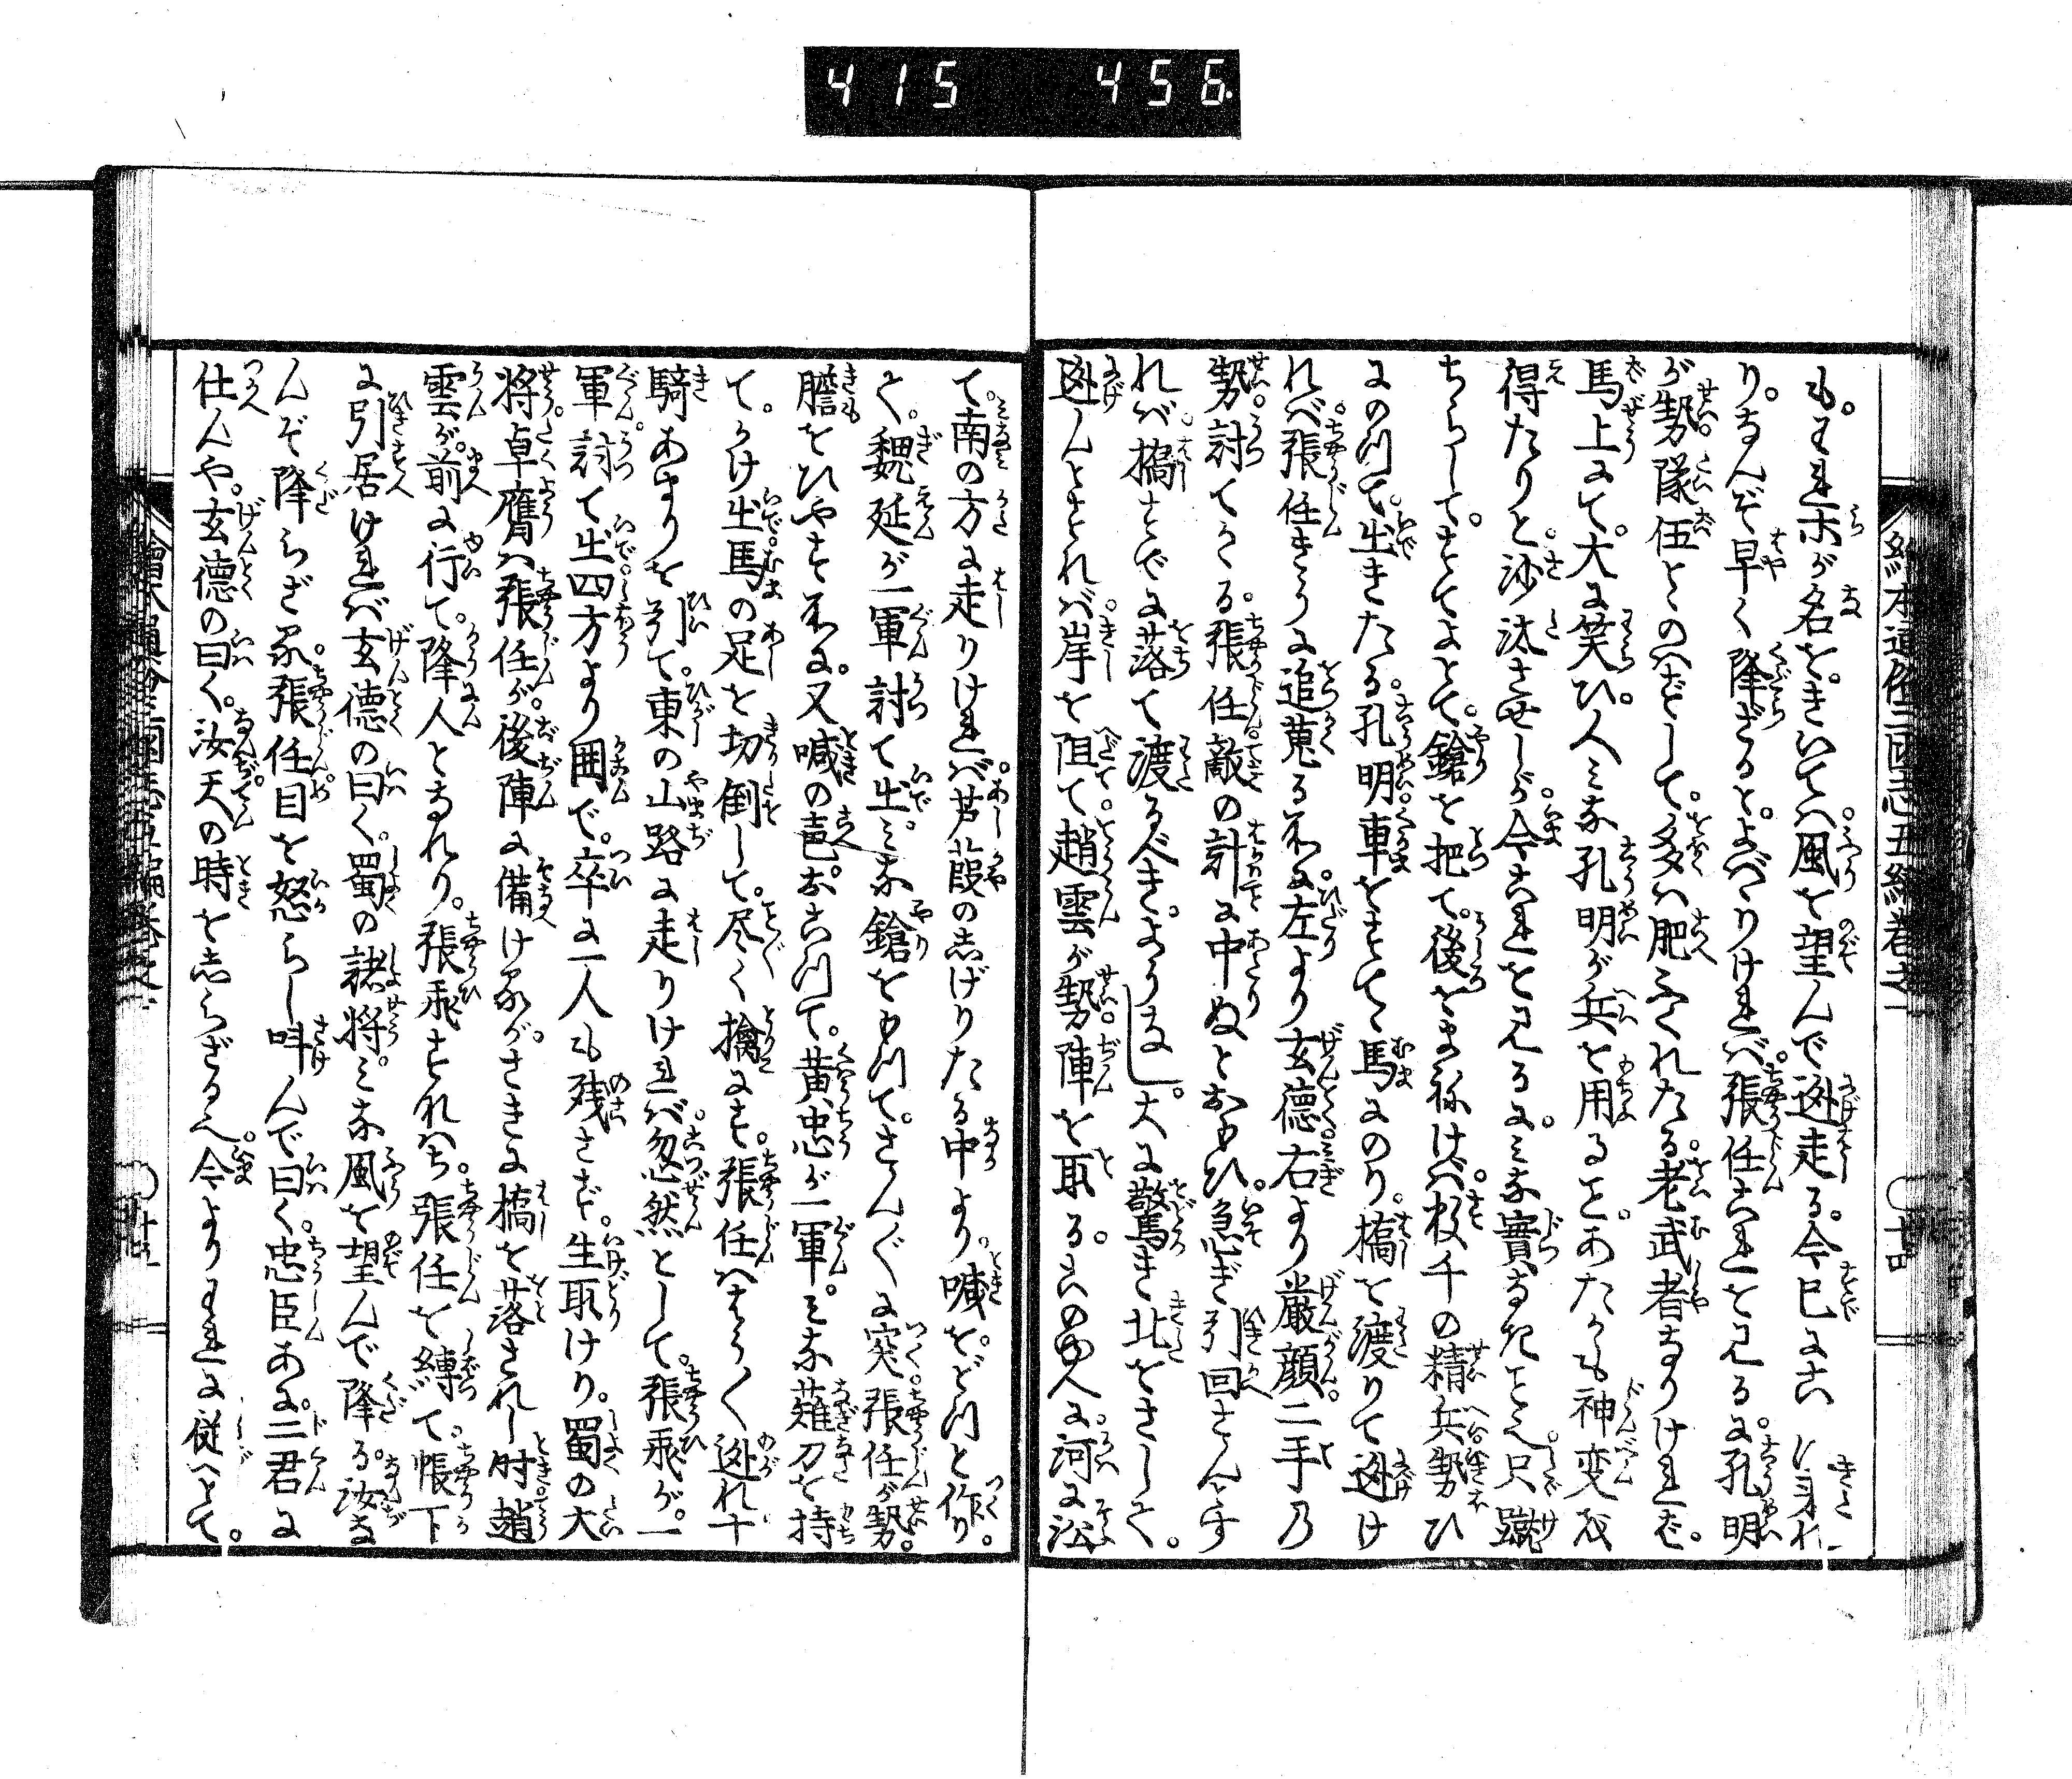 415 456
絵本通俗三國志五編巻之
も。われ木が名を。きいてハ。風を望んで迯走る。今已にこゝに来れ
り。なんぞ早く降ざると。よバゝりけれバ。張任これを見るに。孔明
が勢隊伍とゝのハずして。多ハ肥ふくれたる。老武者なりけれバ。
馬上にて。大に笑ひ。人ミな孔明が兵を用ること。あたかも神変
得たりと。沙汰させしが。今これを見るに。ミな實なきこと也。只蹴
ちらして。すてよとて。鎗を把て。後をまねけバ。数千の精兵勢ひ
にのつて。出きたる。孔明車をすてゝ馬にのり。橋を渡りて迯け
れバ。張任きうに追蒐る所に。左より玄徳。右より嚴顔。二手の
勢。討てかゝる。張任敵の計に中ぬとおもひ。急ぎ引回さんとす
れバ。橋すでに落て渡るべきやうなし。大に驚き北をさして。
迯んとすれバ。岸を阻て。趙雲が勢。陣を取る。このゆへに。河に沿
て。南の方に走りけれバ。芦葭のしげりたる中より。喊を。どつと作り。
て。魏延が一軍討て出。ミな鎗をもつて。さんぐに突。張任が勢。
膽をひやす所に。又喊の声。おこつて。黄忠が一軍。ミな薙刀を持
て。かけ出。馬の足を切倒して。尽く擒にす。張任ハやうく迯れ十
騎あまりを引て。東の山路に走りけれバ。忽然として。張飛が。一
軍。討て出。四方より囲で。卒に一人も残さず。生取けり。蜀の大
将。卓膺ハ張任が。後陣に備けるが。さきに橋を落されし时。趙
雲が。前に行て。降人となれり。張飛すなハち。張任を縛て。帳下
に引居けれバ。玄徳の曰く。蜀の諸将。ミな風を望んで降る。汝な
んぞ降らざる。張任目を怒らし。叫んで曰く。忠臣あに。二君に
仕んや。玄徳の曰く。汝天の時をしらざるへ。今よりわれに従へとて。